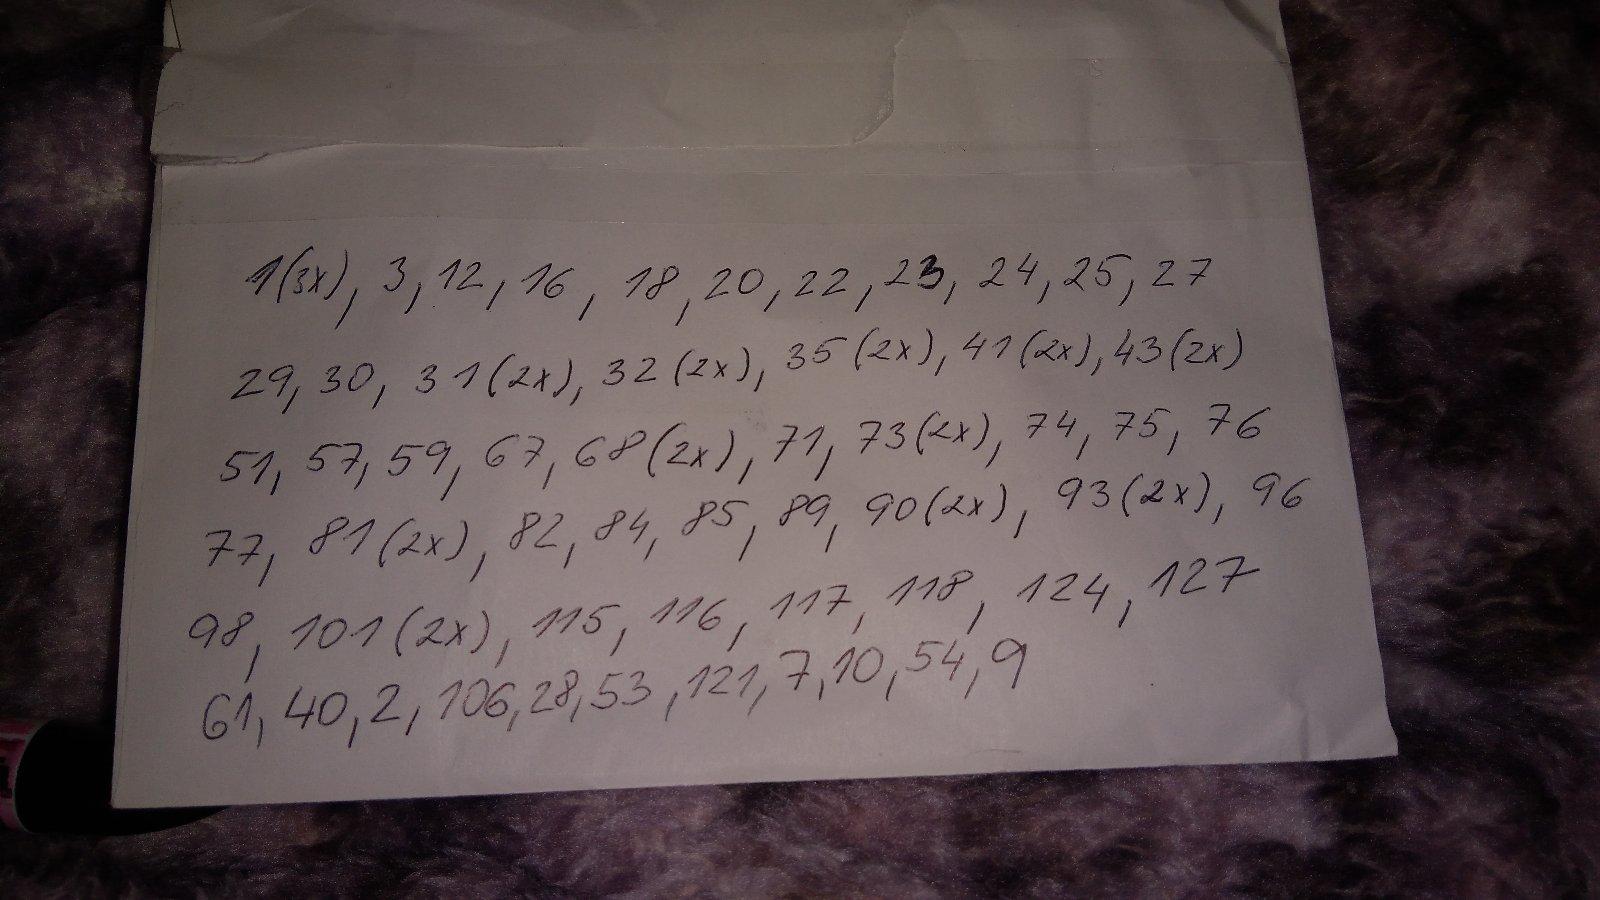 1(3x), 3, 12, 16, 18, 20, 22, 23, 24, 25, 27
29, 30, 31(2x), 32(2x), 35(2x), 41(2x), 43(2x)
51, 57, 59, 67, 68(2x), 71, 73(2x), 74, 75, 76
77, 81(2x), 82, 84, 85, 89, 90(2x), 93(2x), 96
98, 101(2x), 115, 116, 117, 118, 124, 127
61, 40, 2, 106, 28, 53, 121, 7, 10, 54, 9